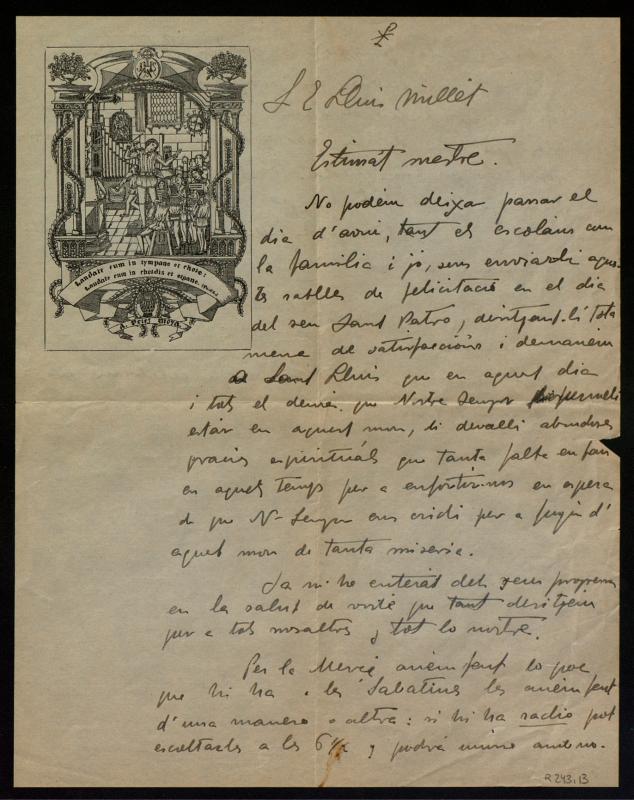 Laudate eum in tympano et choro:
Laudate eum in chordis et organo.
S E Lluis Millet
Estimat mestre.
No podem deixar passar el
dia d'avui, tant els escolans com
la familia i jo, sens enviarli aques-
tes ratlles de felicitació en el dia
del seu Sant Patró, desitjant-li tota
mena de satisfaccións i demanem
a Sant Lluis que en aquest dia
i tots el demés que Nostre Senyor
estar en aquest mon, li devalli abundoses
gracies espirituáls que tanta falta en fan
en aquets temps per a enfortirnos en espera
de que N- Senyor ens cridi per a fugir d'
aquet mon de tanta miseria.
Ja m'he enterat dels seus progresos
en la salut de vosté que tant desitjem
per a tots nosaltres y tot lo nostre.
Per la Mercé anem fent lo poc
que hi ha i les Sabatines les anem fent
d'una manera o altra: si hi ha radio pot
escoltarles a les 6 1/2 y podrá
R 243, B